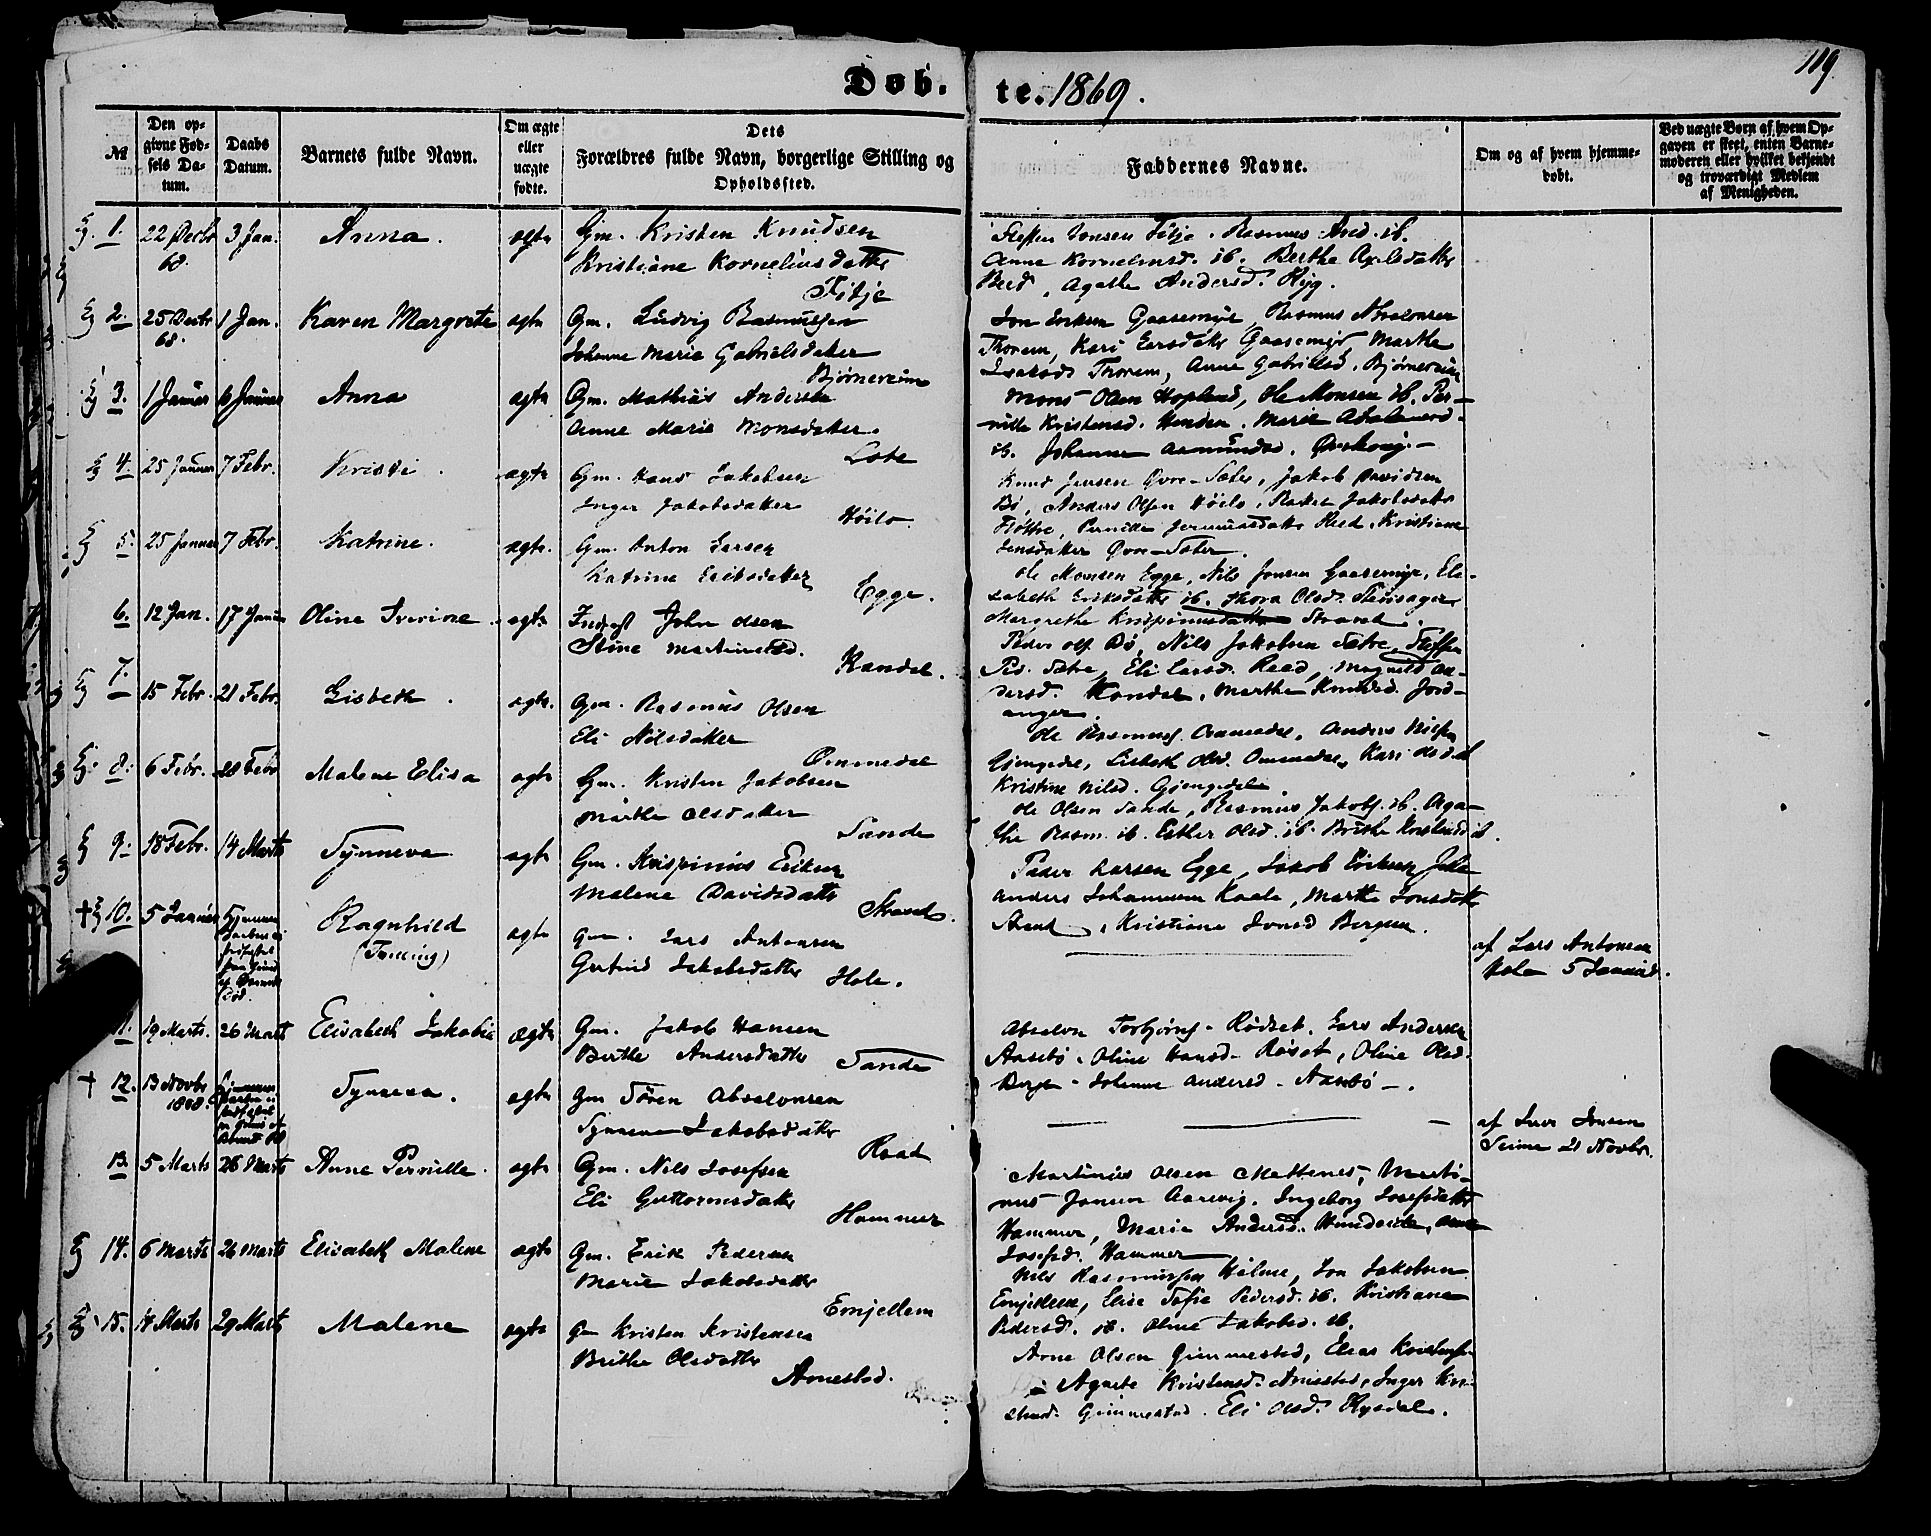 119
Døb-
te. 1869.
№
Den op-
givne Fød-
sels Da-
tum.
Daabs
Datum.
Barnets fulde Navn.
Om ægte
eller
uægte
fødte.
Dets
Forældres fulde Navn, borgerlige Stilling og
Opholdssted.
Faddernes Navne.
Om og af hvem hjemme-
døbt.
Ved uægte Børn af hvem Op-
gaven er skeet, enten Barne-
moderen eller hvilket bekjendt
og troværdigt Medlem
af Menigheden.
1. 22 Decbr 68. 3 Jan. Anna. ægte
Gm. Kristen Knudsen
Kristiane Korneliusdatter
Fitje
Steffen Jonsen Fitje. Rasmus And. ib.
Anne Korneliusd. ib. Berthe Axelsdatter
Agathe Andersd. Ryg.
2. 25 Decbr 68. 1 Jan. Karen Margrete ægte
Gm. Ludvig Rasmussen
Johanne Marie Gabrielsdatter
Bjørnereim
Jon Eriksen Gaasemyr, Rasmus Absalonsen
Thorem, Kari Larsdatter Gaasemyr, Marthe
Isaksd. Thorem, Anne Gabrielsd. Bjørnereim
3. 1 Januar 6 Januar Anna ægte
Gm. Mathias Andersen
Anne Marie Monsdatter.
Lote
Mons Olsen Hopland, Ole Monsen ib. Per-
nille Kristensd. Henden. Marie
ib. Johanne Aamundsd.
4. 25 Januar 7 Febr. Kristi. ægte
Gm. Hans Jakobsen
Inger Jakobsdatter
Høilo
Knud Jensen Øvre-Sæter, Jakob Davidsen
Bø, Anders Olsen Høilo, Rakel Jakobsdatter
Pernille Jeremiasdatter Reed, Kristiane
Jensdatter Øvre-Sæter.
5. 25 Januar 7 Febr. Katrine. ægte.
Gm. Anton Larsen
Katrine Eriksdatter
Egge.
Ole Monsen Egge, Nils Jonsen Gaasemyr, Eli-
sabeth Eriksdatter ib. Thora Olsd.
Margrethe Krispinusdatter
6. 12 Jan. 17 Januar Oline Severine. ægte
Inderst John Olsen
Stine Martinusd.
Kandal.
Peder Ols. Bø, Nils Jakobsen Sætre, Steffen
Ped. Sætre, Eli Larsd. Raad, Magnild An-
dersd. Kandal. Marthe Knudsd. Jord-
anger.
7. 15 Febr. 21 Febr. Lisbeth. ægte.
Gm. Rasmus Olsen
Eli Nilsdatter
Ommedal
Ole Rasmuss. Ommedal, Anders Nilsen
Gjengedal, Lisbeth Olsd. Ommedal, Kari Olsd. ib
Kristine Nilsd. Gjengedal.
8. 6 Febr. 28 Febr Malene Elisa ægte
Gm. Kristen Jakobsen
Marthe Olsdatter
Sande
Ole Olsen Sande, Rasmus Jakobs. ib. Aga-
the Rasm. ib. Esther Olsd. ib. Brithe Kristensd. ib.
9. 18 Febr. 14 Marts Synneva ægte
Gm. Krispinus Eriksen
Malene Davidsdatter
Peder Larsen Egge, Jakob Eriksen
Anders Johannesen Kaale, Marthe Jonsdatter
Kristiane Jonsd Bergem.
† 10. 5 Januar Ragnhild
(Tvilling)
ægte
Gm. Lars Antonsen
Gertrud Jakobsdatter
Hole.
af Lars Antonsen
Hole 5 Januar.
11. 19 Marts. 26 Marts Elisabeth Jakobia ægte
Gm. Jakob Hansen
Berthe Andersdatter
Sande
Absalon Torbjørns. Rødset. Lars Andersen
Aasebø. Oline Hansd. Røset, Oline Olsd.
Berge. Johanne Andersd. Aasebø.
† 12. 13 Novbr 1868. Synneva. ægte
Gm Søren Absalonsen
Synneva Jakobsdatter
Raad
af Iver Jonsen
Seime 21 Novbr.
13. 5 Marts 26 Marts Anne Pernille. ægte
Gm. Nils Josefsen
Eli Guttormsdatter
Hammer
Martinus Olsen Mettenes, Marti-
nus Jonsen Aarevig, Ingeborg Josefsdatter
Hammer, Marie Andersd. Hundeide, Anne
Josefsd. Hammer
14. 6 Marts 26 Marts Elisabeth Malene ægte
Gm. Erik Pedersen
Marie Jakobsdatter
Emjellem
Nils Rasmussen Holme, Jon Jakobsen
Emjellem, Elise Sofie Pedersd. ib. Kristiane
Pedersd. ib. Oline Jakobsd. ib.
15. 14 Marts 29 Marts Malene ægte
Gm Kristen Kristensen
Brithe Olsdatter
Arnestad.
Arne Olsen Gimmestad, Elias Kristensen
Agnete Kristensd. Arnestad, Inger Kri-
stensd. Gimmestad. Eli Olsd. Rysdal.